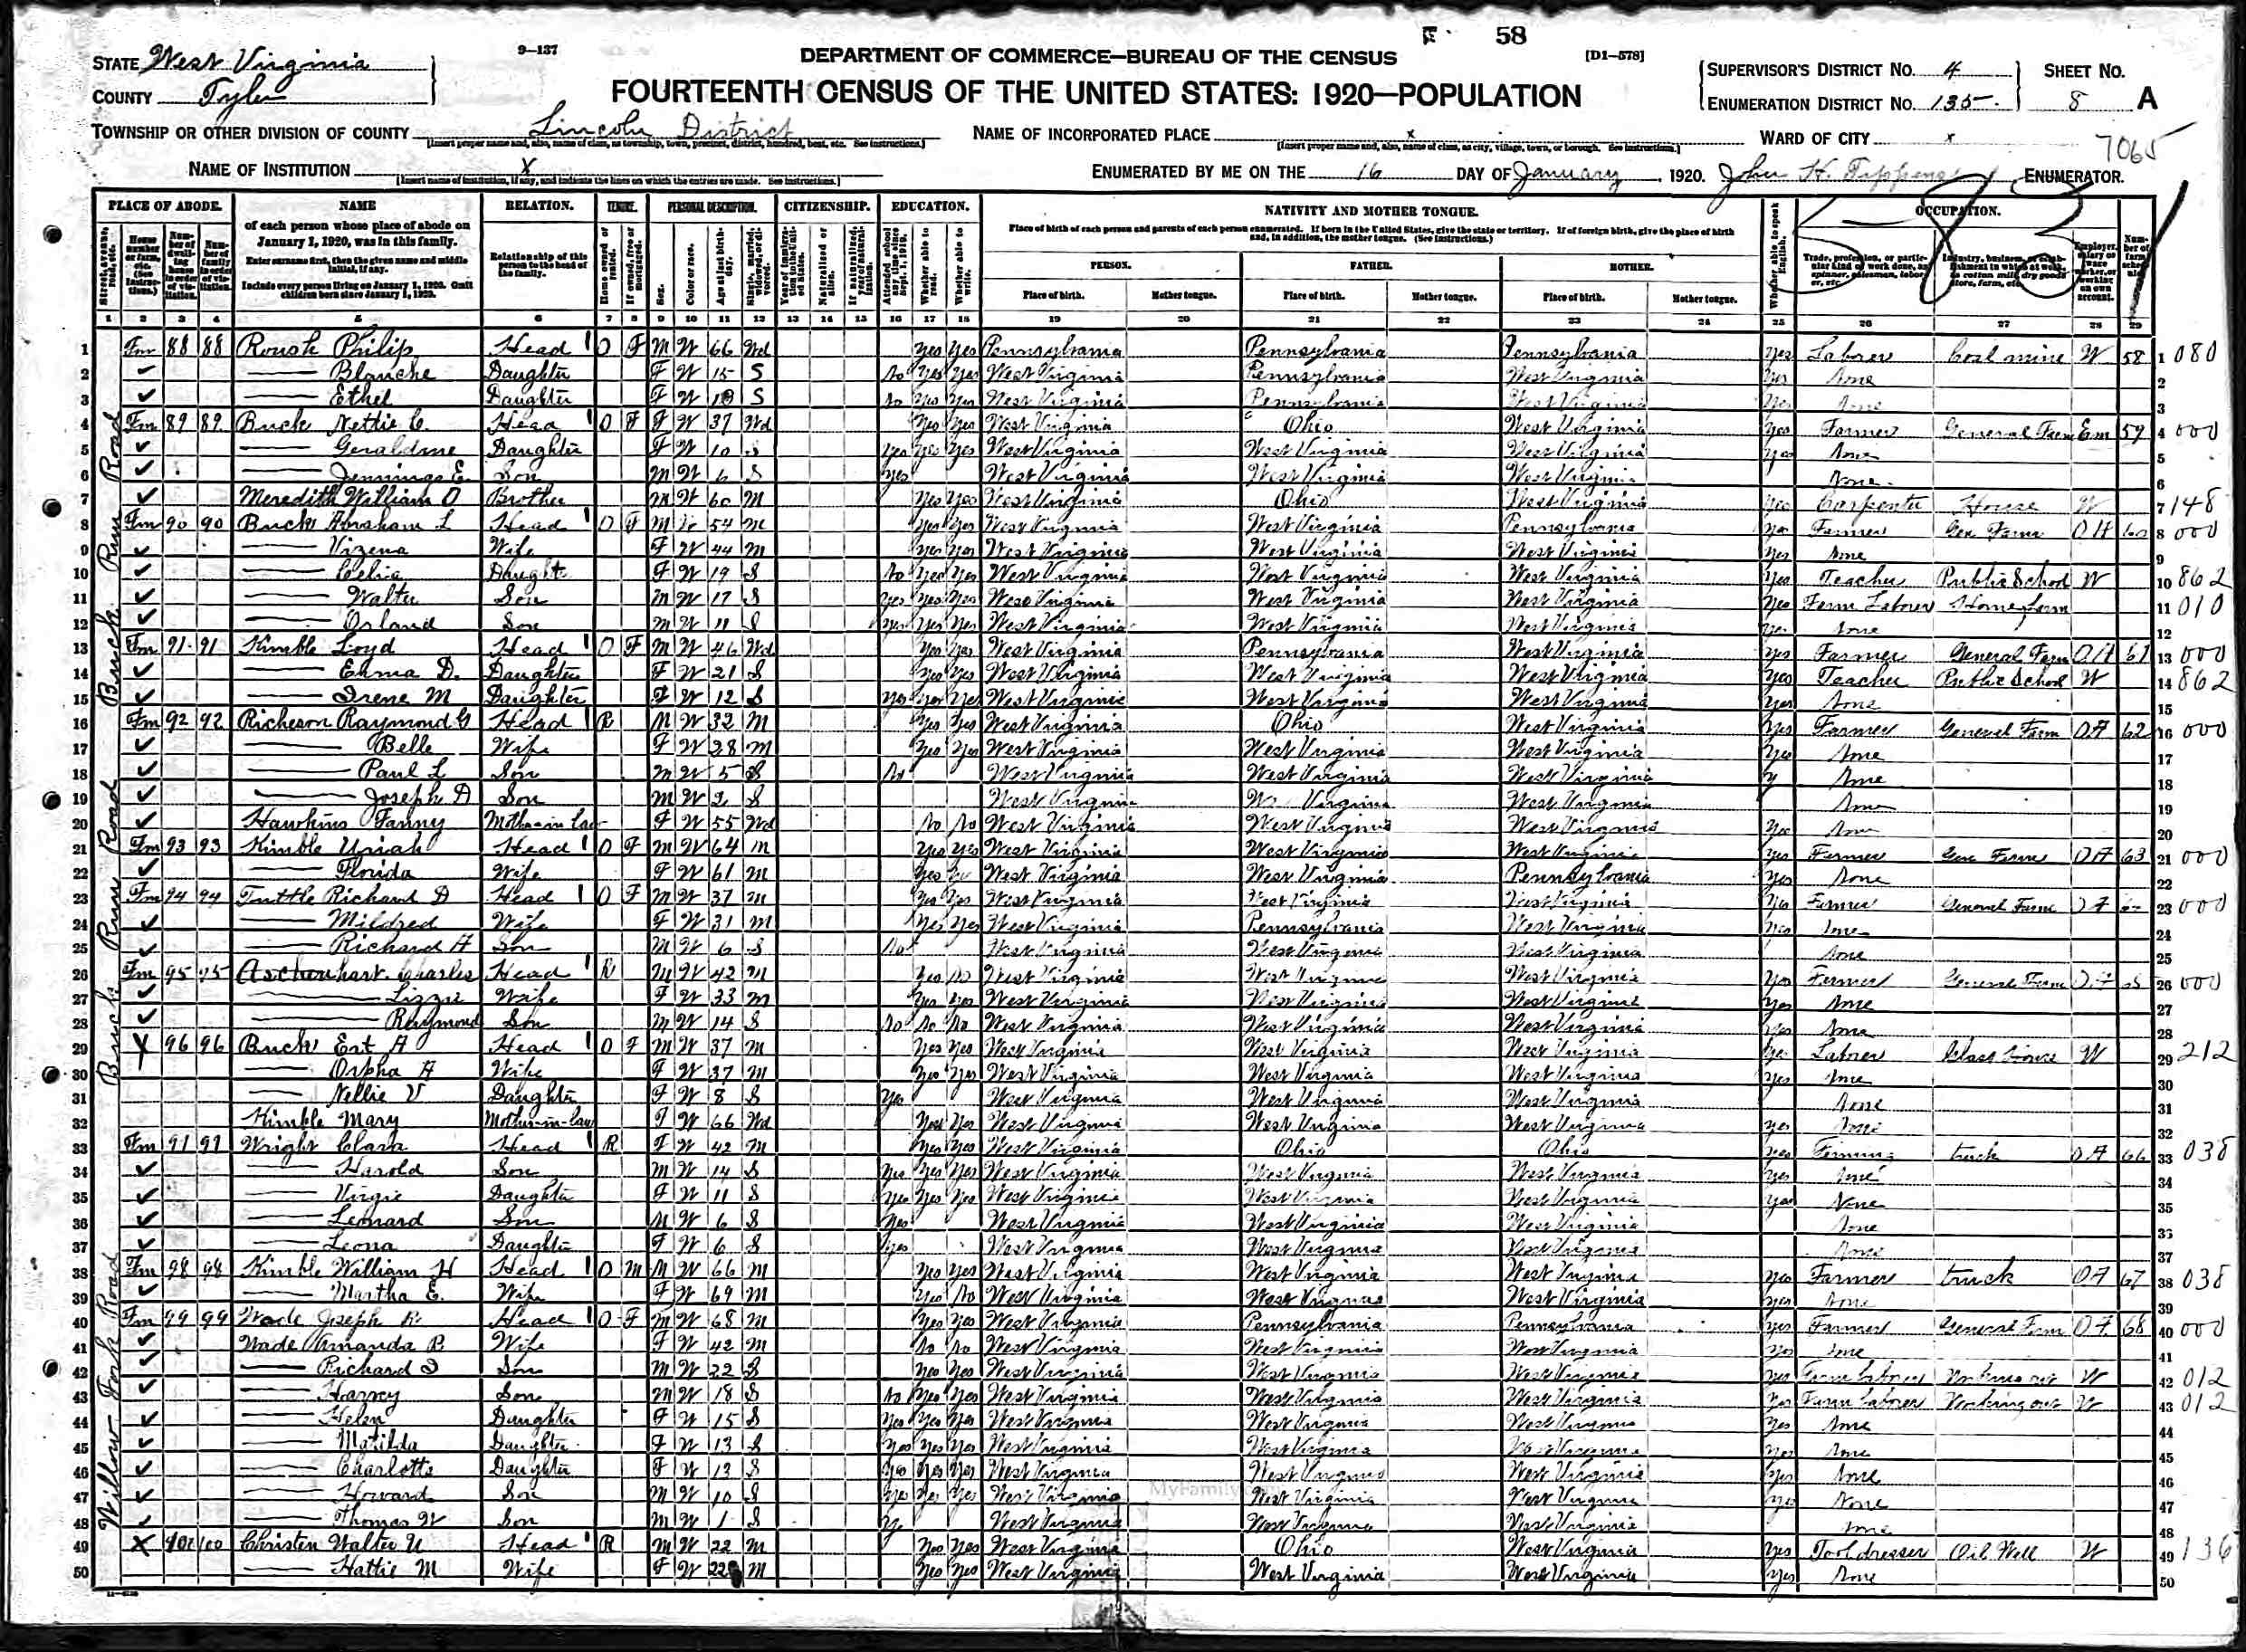 58
9-137
DEPARTMENT OF COMMERCE—BUREAU OF THE CENSUS
[D1-578]
FOURTEENTH CENSUS OF THE UNITED STATES: 1920—POPULATION
STATE West Virginia
COUNTY Tyler
SUPERVISOR'S DISTRICT No. 4
ENUMERATION DISTRICT No. 135
SHEET No. 8 A
TOWNSHIP OR OTHER DIVISION OF COUNTY Lincoln District
[Insert proper name and, also, name of class, as township, town, precinct, district, hundred, beat, etc. See instructions.]
NAME OF INCORPORATED PLACE x
[Insert proper name and, also, name of class, as city, village, town, or borough. See instructions.]
WARD OF CITY x
7065
NAME OF INSTITUTION X
[Insert name of institution, if any, and indicate the lines on which the entries are made. See instructions.]
ENUMERATED BY ME ON THE 16 DAY OF January, 1920. John H. ENUMERATOR.
PLACE OF ABODE. NAME RELATION. TENURE. PERSONAL DESCRIPTION. CITIZENSHIP. EDUCATION. NATIVITY AND MOTHER TONGUE. OCCUPATION.
of each person whose place of abode on January 1, 1920, was in this family.
Enter surname first, then the given name and middle initial, if any.
Include every person living on January 1, 1920. Omit children born since January 1, 1920.
Relationship of this person to the head of the family.
Place of birth of each person and parents of each person enumerated. If born in the United States, give the state or territory. If of foreign birth, give the place of birth and, in addition, the mother tongue. (See instructions.)
PERSON. FATHER. MOTHER.
Place of birth. Mother tongue. Place of birth. Mother tongue. Place of birth. Mother tongue.
1 2 3 4 5 6 7 8 9 10 11 12 13 14 15 16 17 18 19 20 21 22 23 24 25 26 27 28 29
1 Fm 88 88 Roush Philip Head O F M W 66 Wd Yes Yes Pennsylvania Pennsylvania Pennsylvania Yes Laborer Coal mine W 58 1 080
2 Blanche Daughter F W 15 S No Yes Yes West Virginia Pennsylvania West Virginia Yes None 2
3 Ethel Daughter F W S No Yes Yes West Virginia Pennsylvania West Virginia Yes None 3
4 Fm 89 89 Buck Nettie C. Head O F F W 37 Wd Yes Yes West Virginia Ohio West Virginia Yes Farmer General Farm Em 59 4 000
5 Geraldine Daughter F W 10 S Yes Yes Yes West Virginia West Virginia West Virginia Yes None 5
6 Jennings E. Son M W 6 S Yes West Virginia West Virginia West Virginia None 6
7 Meredith William O Brother M W 60 M Yes Yes West Virginia Ohio West Virginia Yes Carpenter House W 7 148
8 Fm 90 90 Buck Abraham L Head O F M W 54 M Yes Yes West Virginia West Virginia Pennsylvania Yes Farmer Gen Farm OA 60 8 000
9 Vizena Wife F W 44 M Yes Yes West Virginia West Virginia West Virginia Yes None 9
10 Celia Daught F W 19 S No Yes Yes West Virginia West Virginia West Virginia Yes Teacher Public School W 10 862
11 Walter Son M W 17 S Yes Yes Yes West Virginia West Virginia West Virginia Yes Farm Laborer Home farm 11 010
12 Orland Son M W 11 S Yes Yes Yes West Virginia West Virginia West Virginia Yes None 12
13 Fm 91 91 Kimble Loyd Head O F M W 46 Wd Yes Yes West Virginia Pennsylvania West Virginia Yes Farmer General Farm OA 61 13 000
14 Erma D. Daughter F W 21 S Yes Yes West Virginia West Virginia West Virginia Yes Teacher Public School W 14 862
15 Irene M Daughter F W 12 S Yes Yes Yes West Virginia West Virginia West Virginia Yes None 15
16 Fm 92 92 Richeson Raymond G Head R M W 32 M Yes Yes West Virginia Ohio West Virginia Yes Farmer General Farm OA 62 16 000
17 Belle Wife F W 28 M Yes Yes West Virginia West Virginia West Virginia Yes None 17
18 Paul L Son M W 5 S No West Virginia West Virginia West Virginia Y None 18
19 Joseph D Son M W 2 S West Virginia West Virginia West Virginia None 19
20 Hawkins Fanny Mother-in-law F W 55 Wd No No West Virginia West Virginia West Virginia Yes None 20
21 Fm 93 93 Kimble Uriah Head O F M W 64 M Yes Yes West Virginia West Virginia West Virginia Yes Farmer Gen Farm OA 63 21 000
22 Florida Wife F W 61 M Yes West Virginia West Virginia Pennsylvania Yes None 22
23 Fm 94 94 Tuttle Richard D Head O F M W 37 M Yes Yes West Virginia West Virginia West Virginia Yes Farmer General Farm OA 23 000
24 Mildred Wife F W 31 M Yes Yes West Virginia Pennsylvania West Virginia Yes None 24
25 Richard H Son M W 6 S No West Virginia West Virginia West Virginia None 25
26 Fm 95 95 Aschenhart Charles Head R M W 42 M Yes No West Virginia West Virginia West Virginia Yes Farmer General Farm OA 26 000
27 Lizzie Wife F W 33 M Yes Yes West Virginia West Virginia West Virginia Yes None 27
28 Raymond Son M W 14 S No No No West Virginia West Virginia West Virginia Yes None 28
29 96 96 Buck Ert A Head O F M W 37 M Yes Yes West Virginia West Virginia West Virginia Yes Laborer Glass house W 29 212
30 Orpha A Wife F W 37 M Yes Yes West Virginia West Virginia West Virginia Yes None 30
31 Nellie V Daughter F W 8 S Yes West Virginia West Virginia West Virginia None 31
32 Kimble Mary Mother-in-law F W 66 Wd Yes Yes West Virginia West Virginia West Virginia Yes None 32
33 Fm 97 97 Wright Clara Head R F W 42 M Yes Yes West Virginia Ohio Ohio Yes Farming truck OA 66 33 038
34 Harold Son M W 14 S Yes Yes Yes West Virginia West Virginia West Virginia Yes None 34
35 Virgie Daughter F W 11 S Yes Yes Yes West Virginia West Virginia West Virginia Yes None 35
36 Leonard Son M W 6 S Yes West Virginia West Virginia West Virginia None 36
37 Leona Daughter F W 6 S Yes West Virginia West Virginia West Virginia None 37
38 Fm 98 98 Kimble William H Head O M M W 66 M Yes Yes West Virginia West Virginia West Virginia Yes Farmer truck OA 67 38 038
39 Martha E. Wife F W 69 M Yes No West Virginia West Virginia West Virginia Yes None 39
40 Fm 99 99 Wade Joseph R Head O F M W 68 M Yes Yes West Virginia Pennsylvania Pennsylvania Yes Farmer General Farm OA 68 40 000
41 Wade Amanda B Wife F W 42 M No No West Virginia West Virginia West Virginia Yes None 41
42 Richard I Son M W 22 S Yes Yes West Virginia West Virginia West Virginia Yes Farm Laborer Working out W 42 012
43 Harvey Son M W 18 S No Yes Yes West Virginia West Virginia West Virginia Yes Farm Laborer Working out W 43 012
44 Helen Daughter F W 15 S Yes Yes Yes West Virginia West Virginia West Virginia Yes None 44
45 Matilda Daughter F W 13 S Yes Yes Yes West Virginia West Virginia West Virginia Yes None 45
46 Charlotte Daughter F W 13 S Yes Yes Yes West Virginia West Virginia West Virginia Yes None 46
47 Howard Son M W 10 S Yes Yes Yes West Virginia West Virginia West Virginia Yes None 47
48 Thomas W Son M W 1 S West Virginia West Virginia West Virginia None 48
49 X 100 100 Christen Walter U Head R M W 22 M Yes Yes West Virginia Ohio West Virginia Yes Tooldresser Oil Well W 49 136
50 Hattie M Wife F W 22 M Yes Yes West Virginia West Virginia West Virginia Yes None 50
Buck Run Road
Bucks Run Road
Willow Fork Road